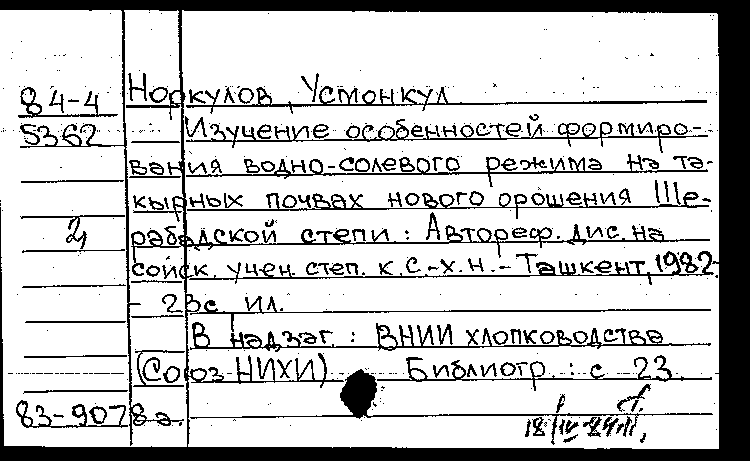 84-4 Норкулов, Усмонкул
5362 Изучение особенностей формиро-
вания водно-солевого режима на та-
кырных почвах нового орошения Ше-
2 рабадской степи: Автореф. дис. на
соиск. учен. степ. к.с.-х.н. - Ташкент, 1982.
- 23с. ил.
В надзаг.: ВНИИ хлопководства
(Союз НИХИ) Библиогр.: с 23.
83-9078а.